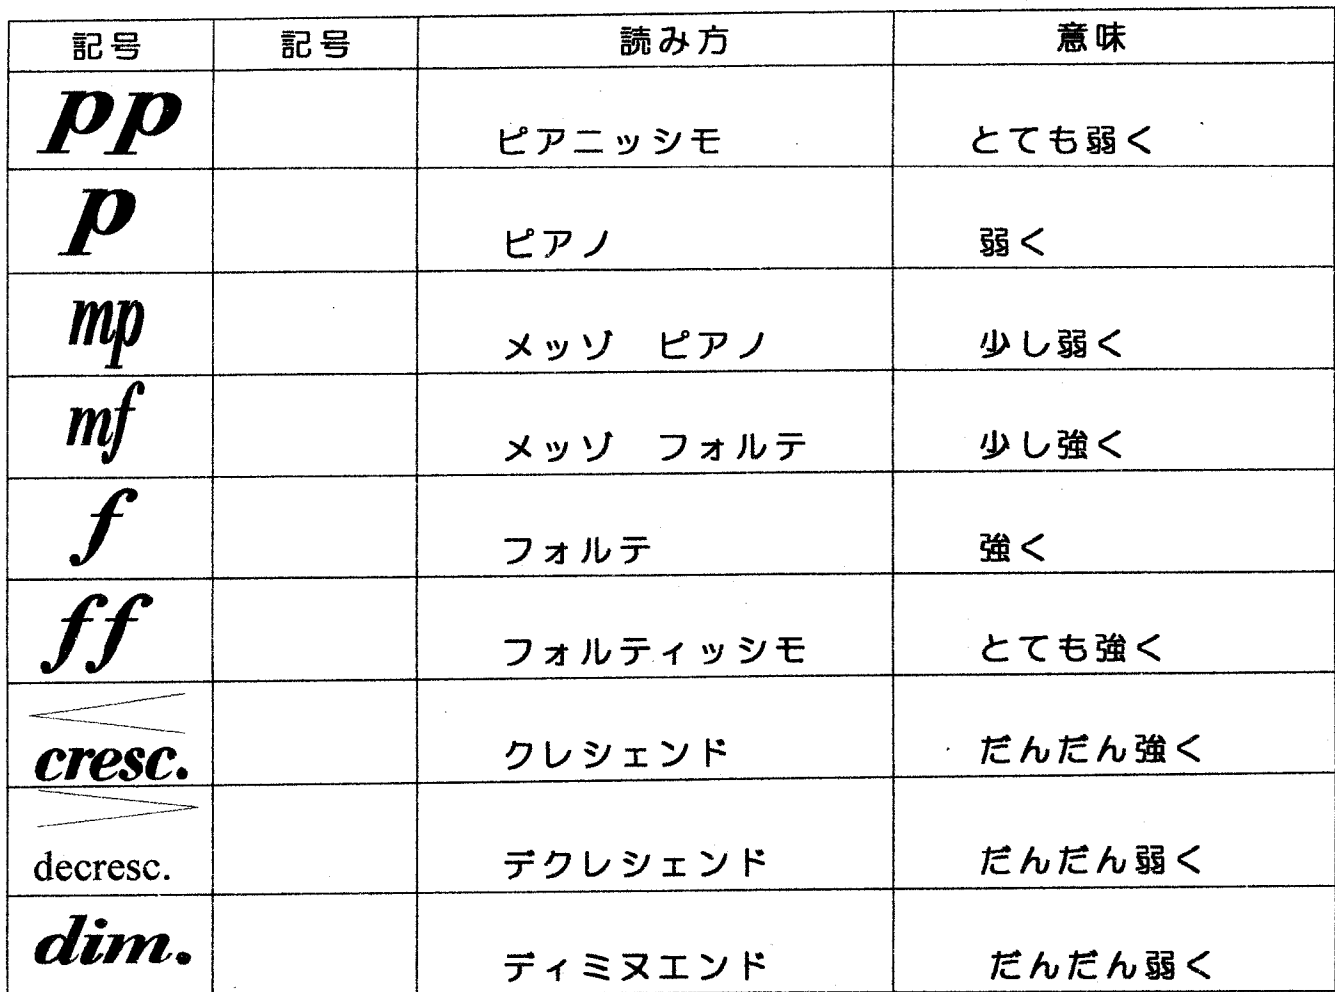 記号 記号 読み方 意味
pp ピアニッシモ とても弱く
p ピアノ 弱く
mp メッゾ ピアノ 少し弱く
mf メッゾ フォルテ 少し強く
f フォルテ 強く
ff フォルティッシモ とても強く
cresc. クレシェンド だんだん強く
decresc. デクレシェンド だんだん弱く
dim. ディミヌエンド だんだん弱く